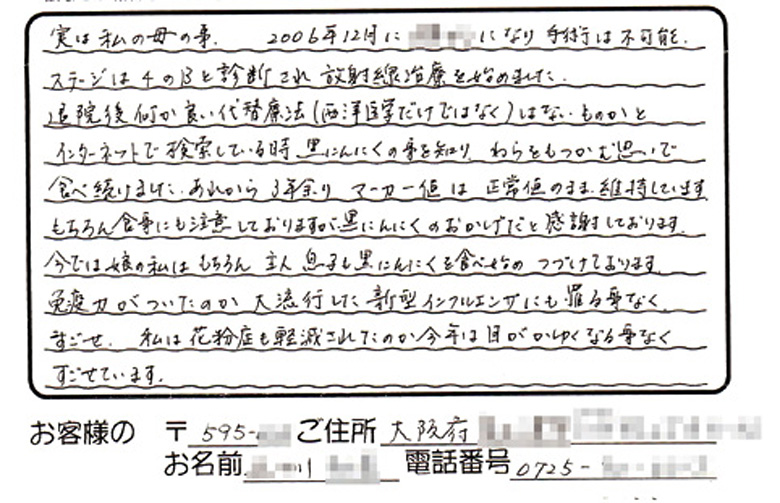 実は私の母の事. 2006年12月に になり手術は不可能.
ステージは4のBと診断され放射線治療を始めました.
退院後何か良い代替療法(西洋医学だけではなく)はないものかと
インターネットで検索している時黒にんにくの事を知り わらをもつかむ思いで
食べ続けました. あれから3年余り マーカー値は 正常値のまま.維持しています
もちろん食事にも注意しておりますが、黒にんにくのおかげだと感謝しております.
今では娘の私はもちろん 主人 息子も黒にんにくを食べ始め つづけております.
免疫力がついたのか 大流行した新型インフルエンザにも罹る事なく.
すごせ. 私は花粉症も軽減されたのか今年は目がかゆくなる事なく
すごせています.
お客様の 〒595- ご住所 大阪府
お名前 川 電話番号 0725-